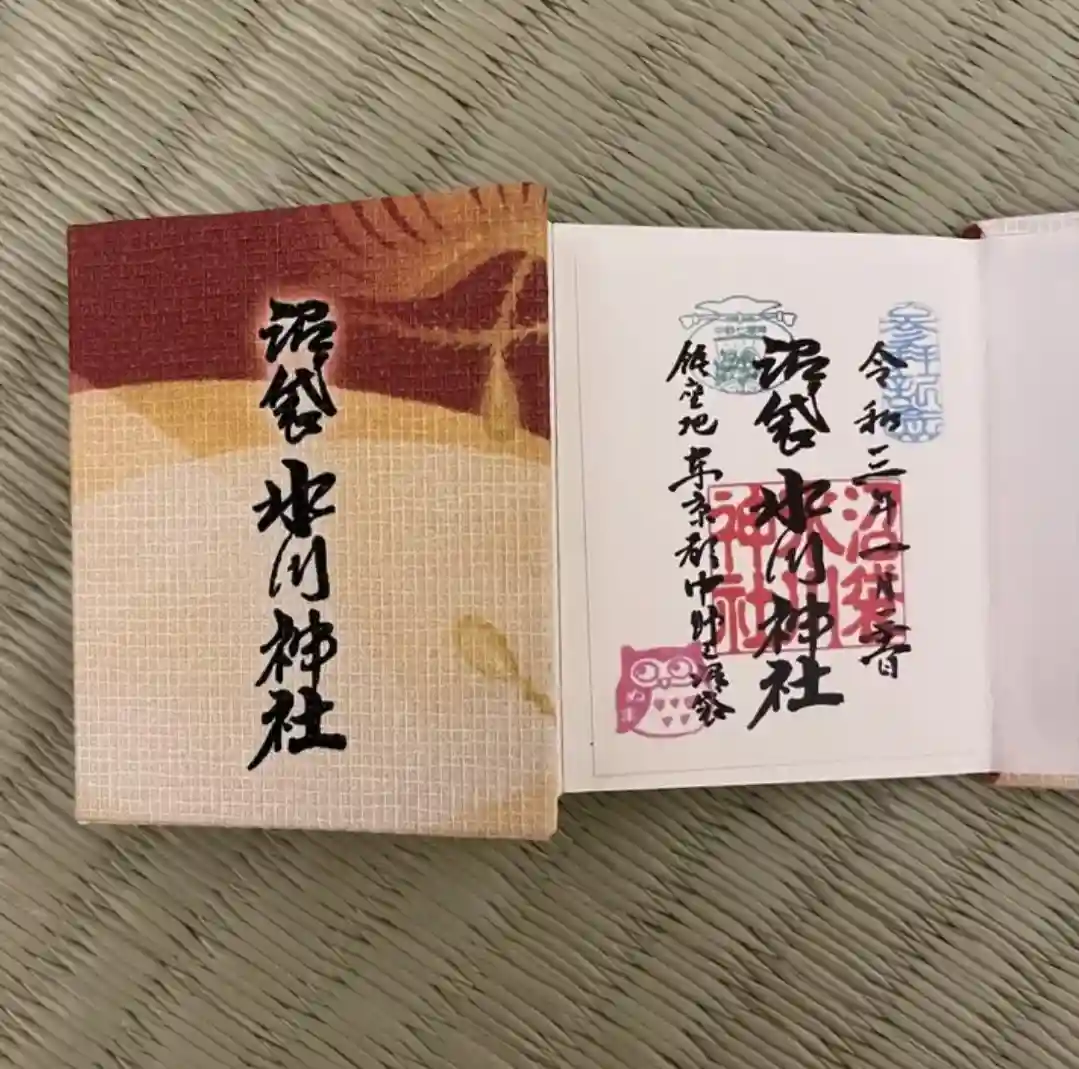 沼袋氷川神社
令和三年一月三日
沼袋氷川神社
鎮座地東京都中野区沼袋
沼袋氷川神社
ぬま